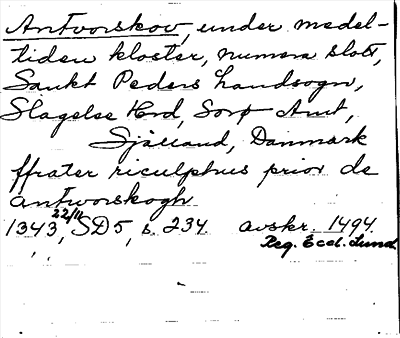 Antvorskov, under medel-
tiden kloster, numera slott,
Sankt Peders landsogn,
Slagelse Hrd, Sorø Amt,
Sjælland, Danmark
ffrater riculphus prior de
antworskogh
1343 22/11, SD5, s. 234 avskr. 1494
Reg. Eccl. Lund.